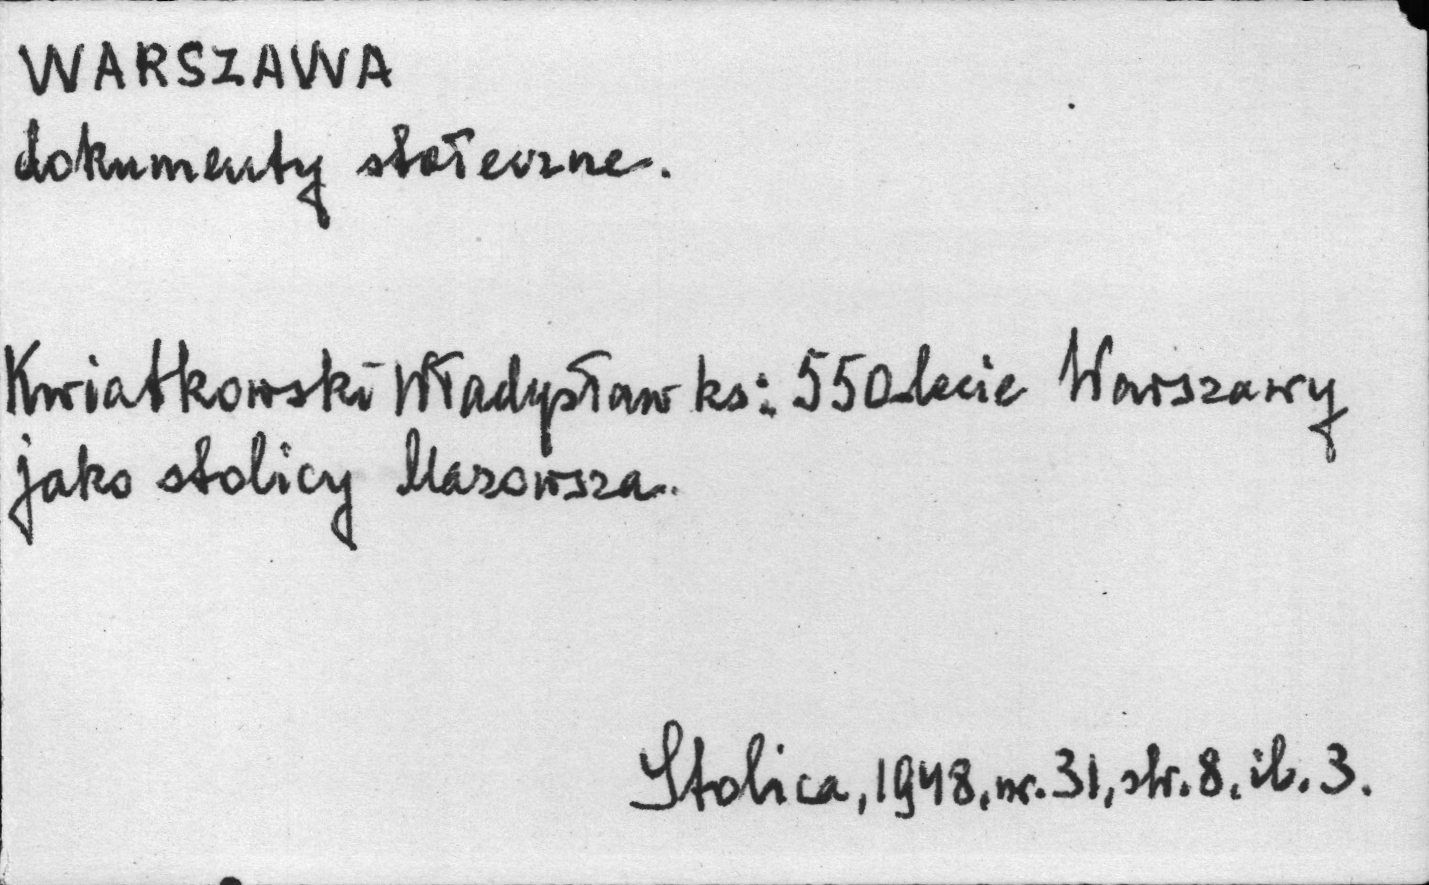 WARSZAWA
dokumenty stołeczne.
Kwiatkowski Władysław ks: 550lecie Warszawy
jako stolicy Mazowsza.
Stolica, 1948, nr. 31, str. 8, il. 3.